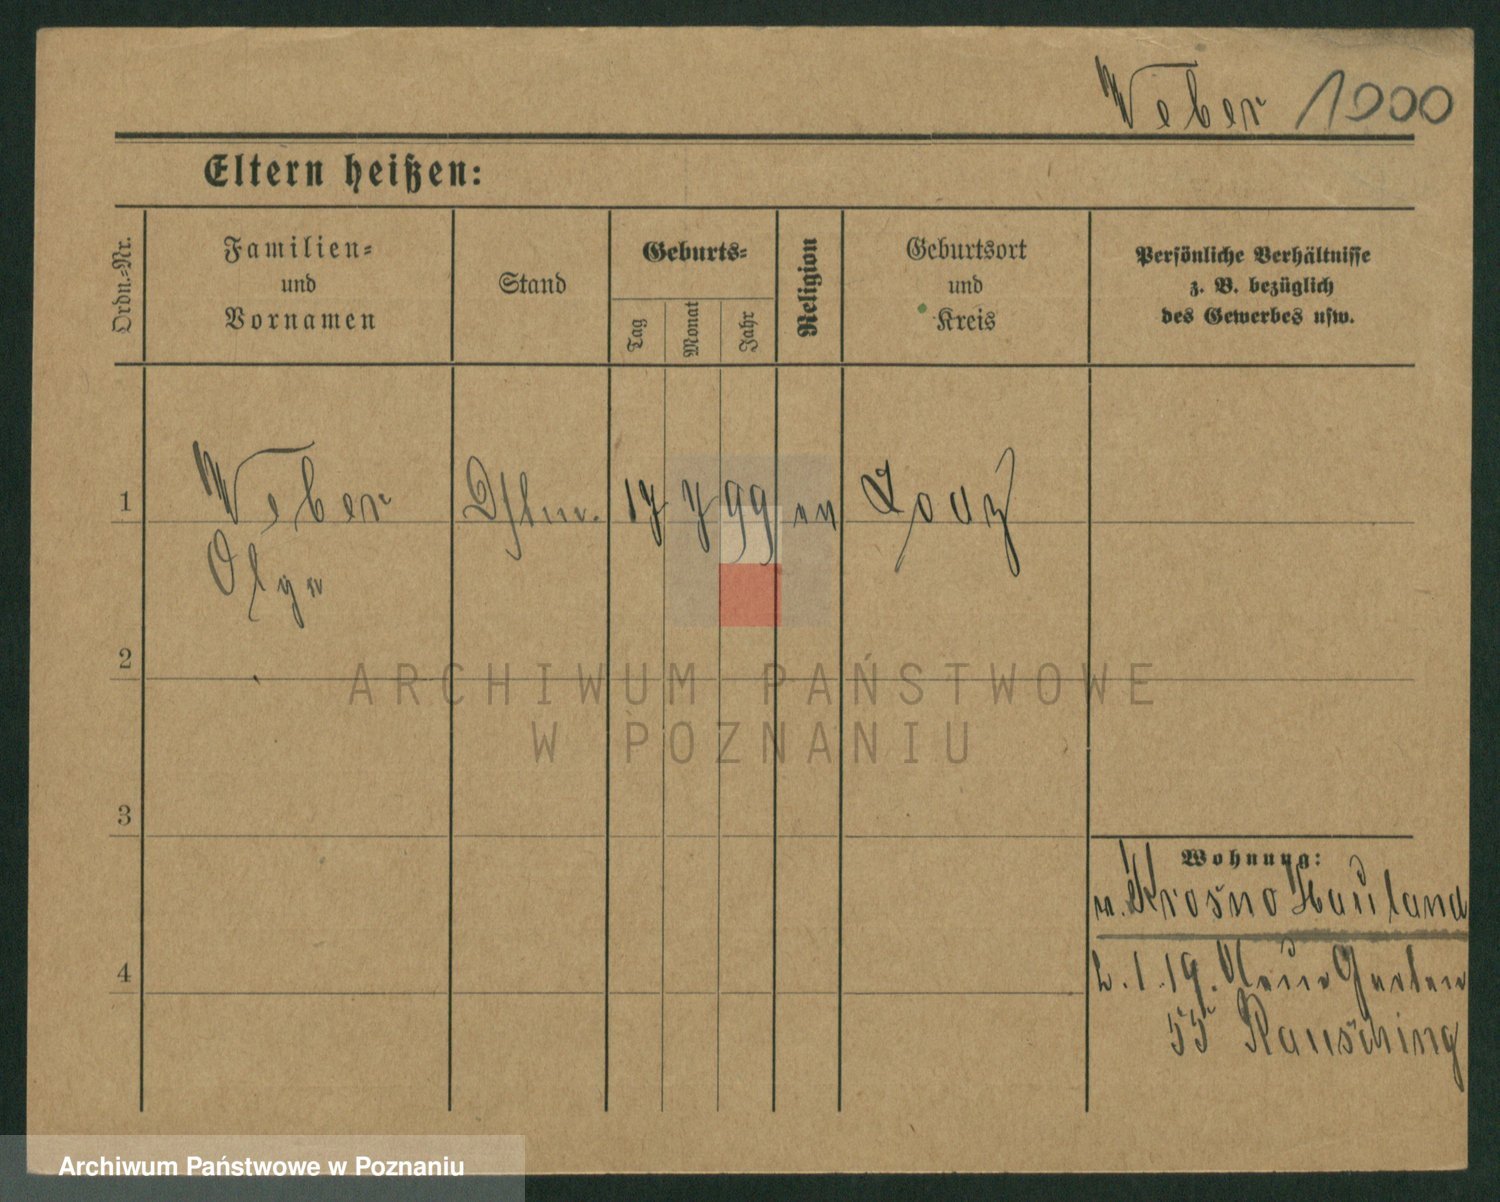 Weber 1000
Eltern heißen:
Ordn.-Nr.
Familien-
und
Vornamen
Stand
Geburts-
Tag
Monat
Jahr
Religion
Geburtsort
und
Kreis
Persönliche Verhältnisse
z. B. bezüglich
des Gewerbes usw.
1 Weber 17 7 99 ev Lodz
Olga
2
3
4
Wohnung:
v. Krosno Hauland
2.1.19. Neue Garten
55 Rausching
ARCHIWUM PAŃSTWOWE
W POZNANIU
Archiwum Państwowe w Poznaniu